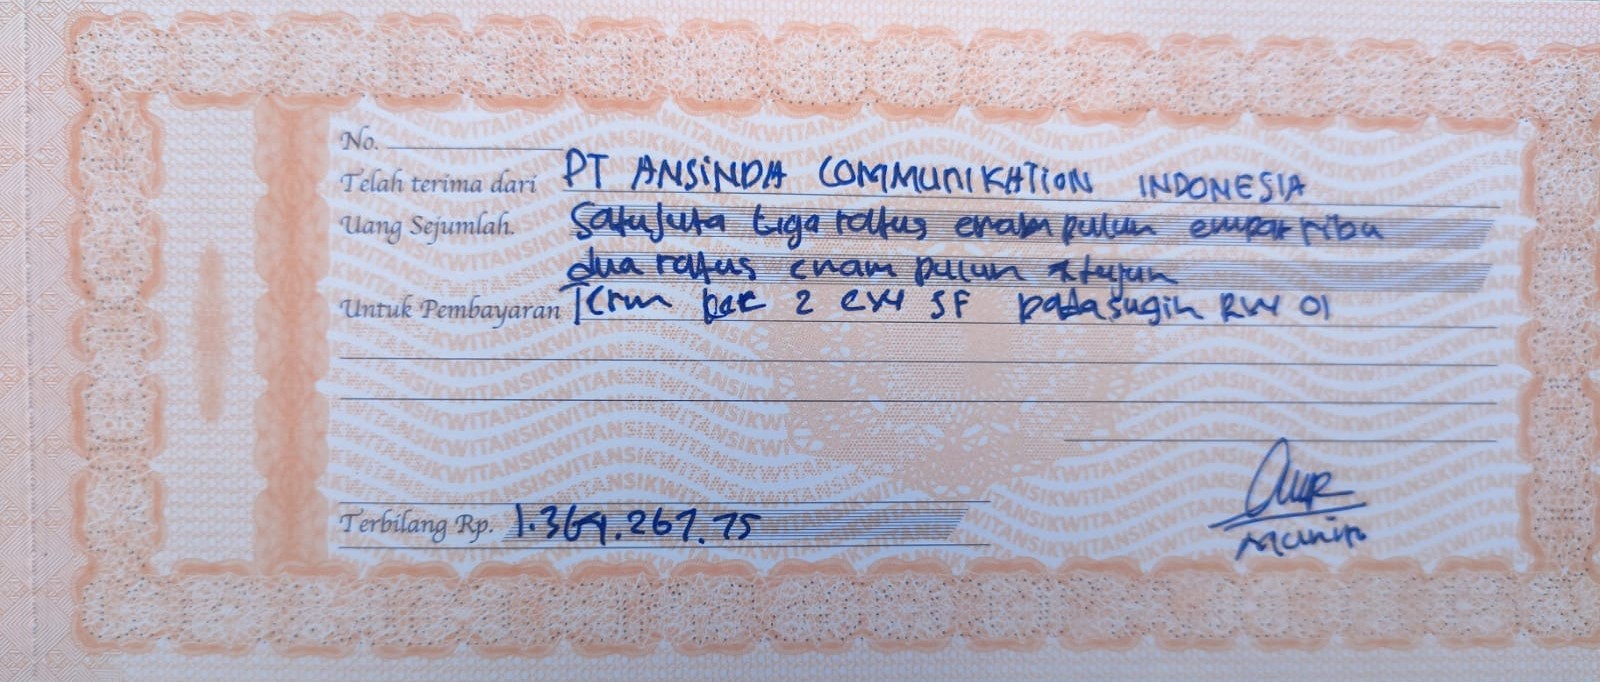 No.
Telah terima dari PT ANSINDA COMMUNIKATION INDONESIA
Uang Sejumlah. Satu juta tiga ratus enam puluh empat ribu
dua ratus enam puluh tujuh
Untuk Pembayaran Term ke 2 EW SF padasugih RW 01
Terbilang Rp. 1.364.267.75